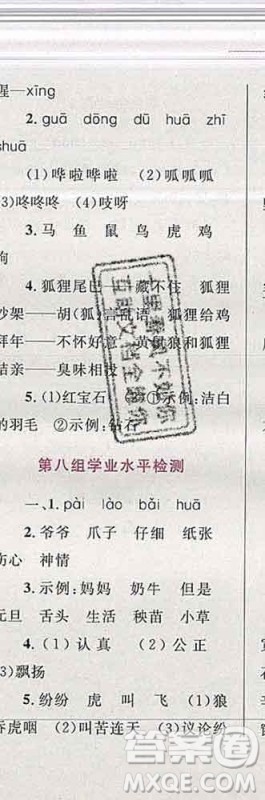 猩—xīng
2.guā dōng dū huā zhī
shuā
(1)哗啦哗啦 (2)呱呱呱
(3)咚咚咚 (4)吱呀
3.马 鱼 鼠 鸟 虎 鸡
狗
4.狐狸尾巴—藏不住 狐狸
吵架—胡(狐)言乱语 狐狸给鸡
拜年—不怀好意 黄鼠狼和狐狸
结亲—臭味相投
5.(1)红宝石 ②示例:洁白
的羽毛
第八组学业水平检测
一、1.pài lào bǎi huā
2.爷爷 爪子 仔细 纸张
伤心 神情
3.示例:妈妈 奶牛 但是
元旦 舌头 生活 秧苗 小草
4.(1)认真 (2)公正
(3)飘扬
5.纷纷 虎 叫 飞 (1)狼
吞虎咽 (2)叫苦连天 (3)议论纷
答案圈
MXQE.COM